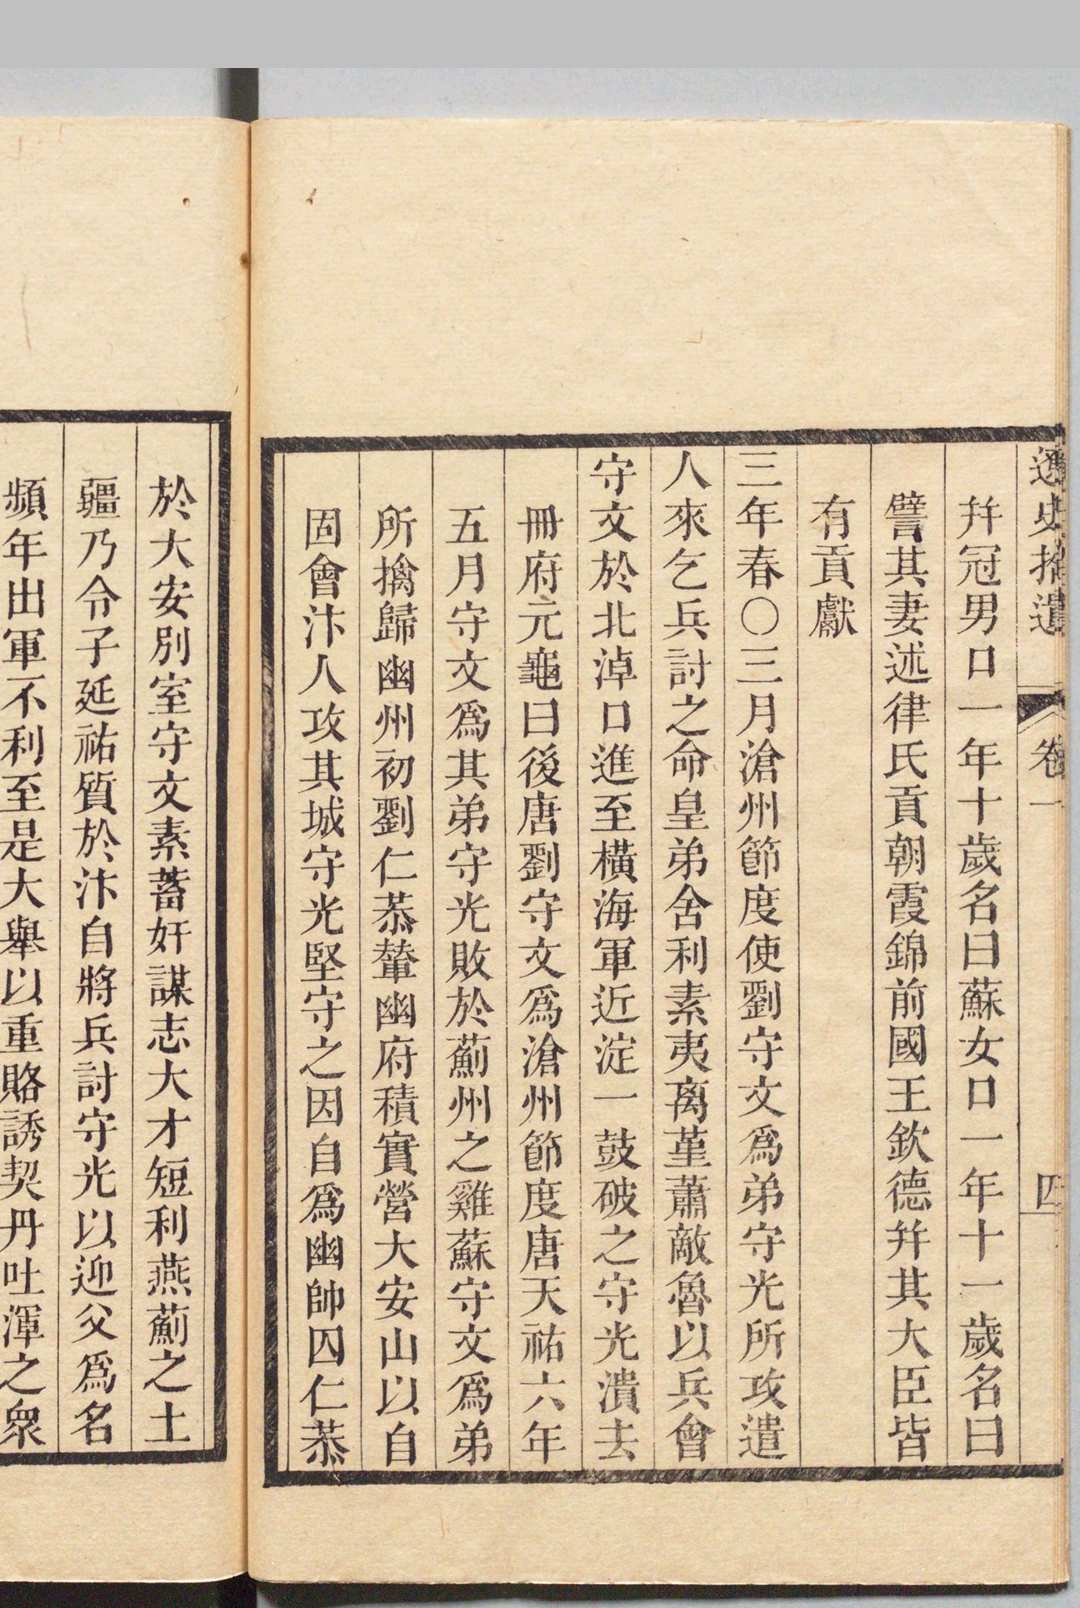 遼史拾遺 卷一 四
幷冠男口一年十歲名曰蘇女口一年十一歲名曰
譬其妻述律氏貢朝霞錦前國王欽德幷其大臣皆
有貢獻
三年春〇三月滄州節度使劉守文爲弟守光所攻遣
人來乞兵討之命皇弟舍利素夷离堇蕭敵魯以兵會
守文於北淖口進至橫海軍近淀一鼓破之守光潰去
冊府元龜曰後唐劉守文爲滄州節度唐天祐六年
五月守文爲其弟守光敗於薊州之雞蘇守文爲弟
所擒歸幽州初劉仁恭輦幽府積實營大安山以自
固會汴人攻其城守光堅守之因自爲幽帥囚仁恭
於大安別室守文素蓄奸謀志大才短利燕薊之土
疆乃令子延祐質於汴自將兵討守光以迎父爲名
頻年出軍不利至是大舉以重賂誘契丹吐渾之眾